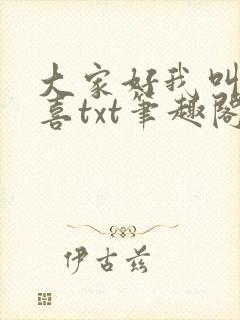 大家好我叫
喜txt笔趣阁
伊古兹